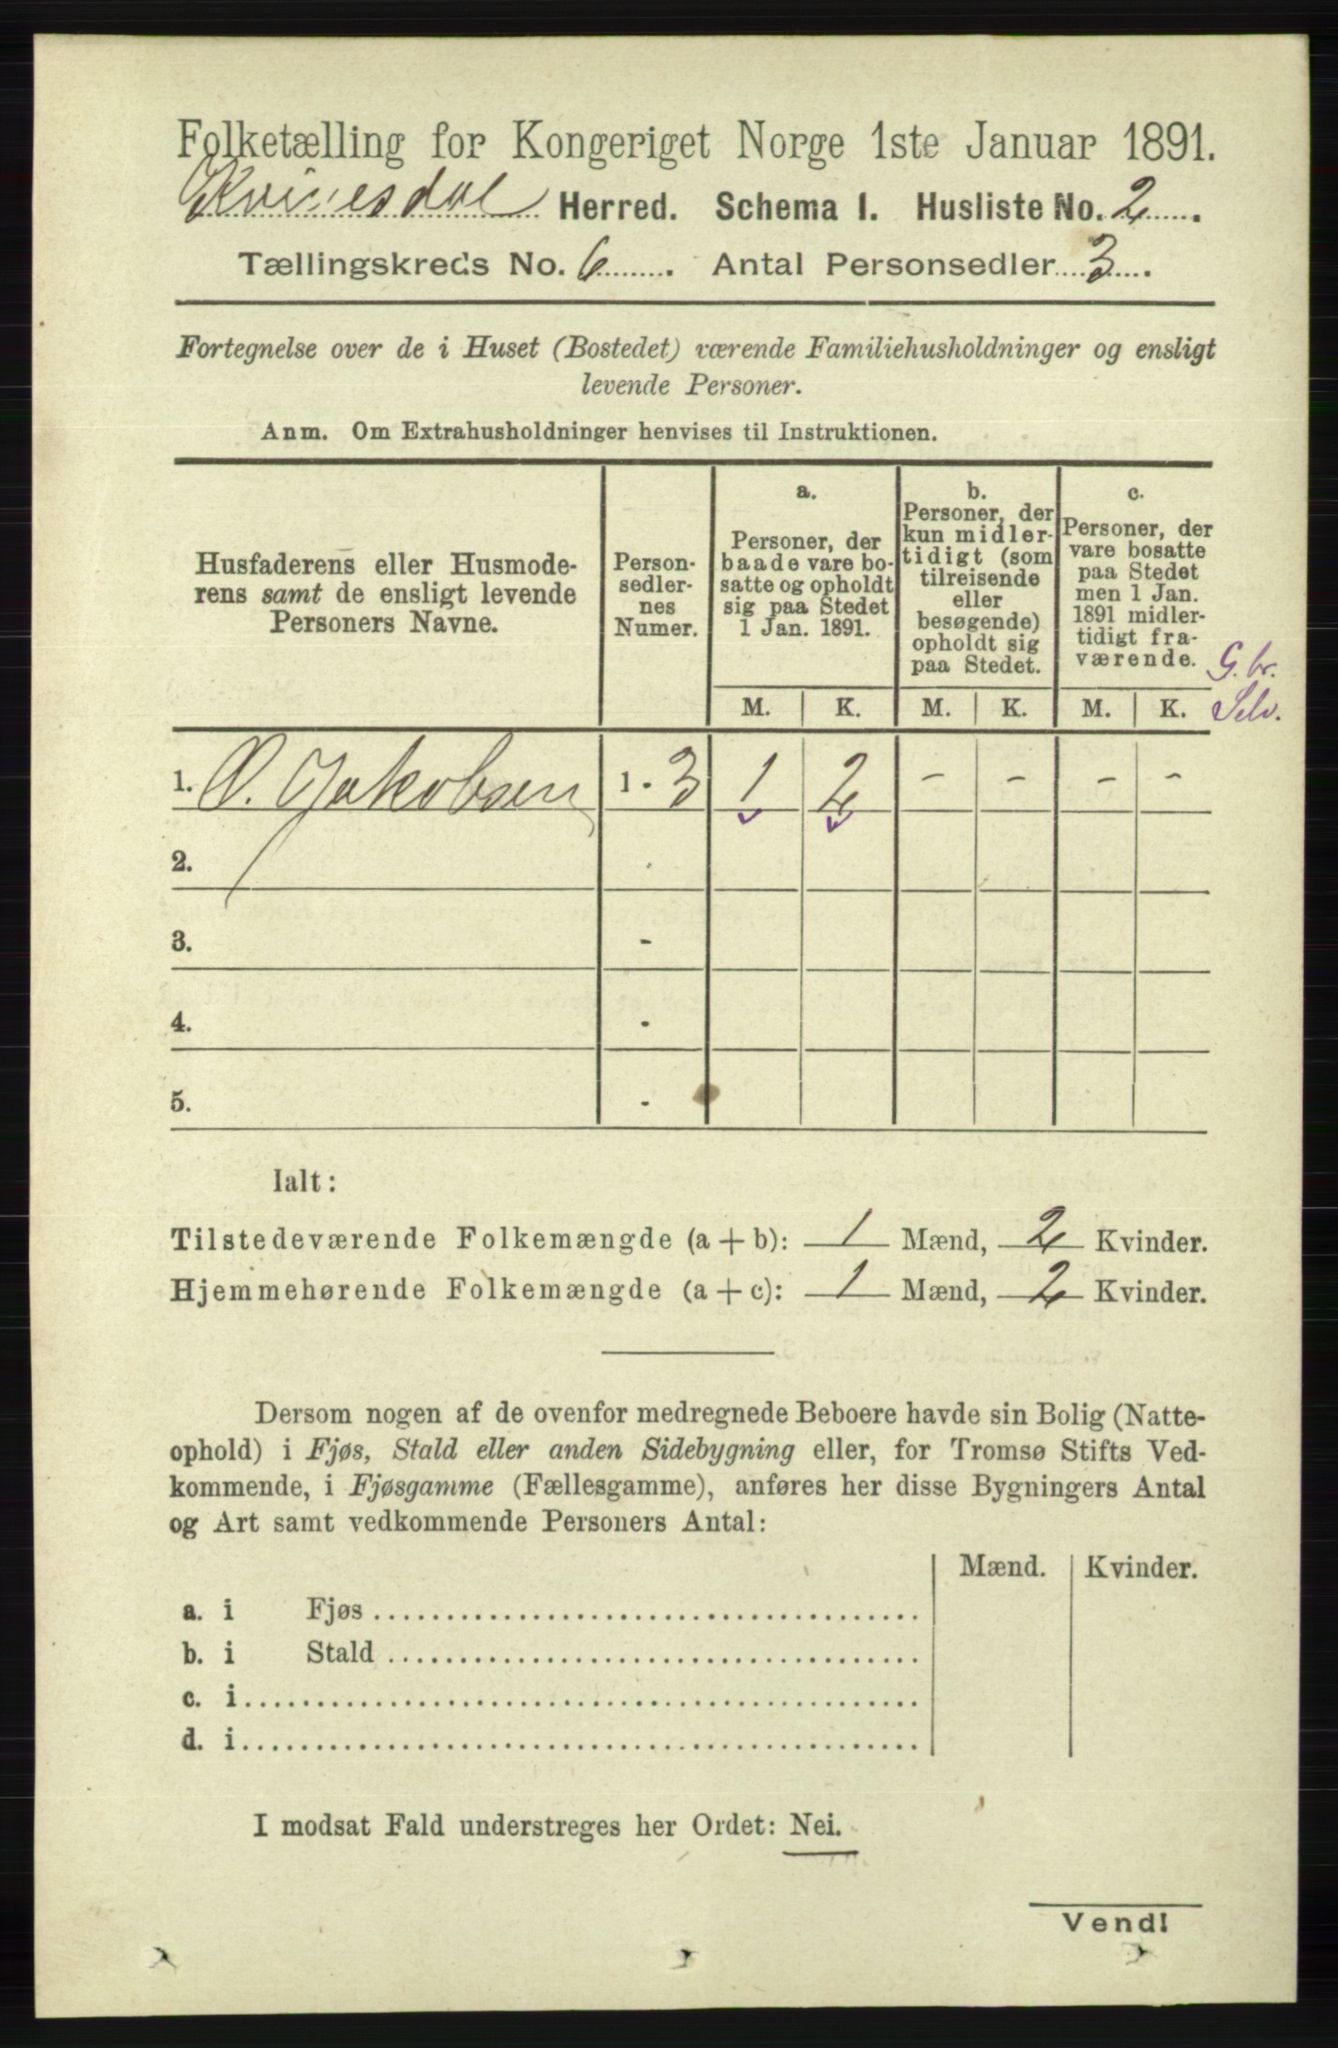 Folketælling for Kongeriget Norge 1ste Januar 1891.
Kvinesdal Herred. Schema I. Husliste No. 2
Tællingskreds No. 6. Antal Personsedler 3.
Fortegnelse over de i Huset (Bostedet) værende Familiehusholdninger og ensligt
levende Personer.
Anm. Om Extrahusholdninger henvises til Instruktionen.
Husfaderens eller Husmode-
rens samt de ensligt levende
Personers Navne.
Person-
sedler-
nes
Numer.
a.
Personer, der
baade vare bo-
satte og opholdt
sig paa Stedet
1 Jan. 1891.
b.
Personer, der
kun midler-
tidigt (som
tilreisende
eller
besøgende)
opholdt sig
paa Stedet.
c.
Personer, der
vare bosatte
paa Stedet
men 1 Jan.
1891 midler-
tidigt fra-
værende.
G.br.
Selv.
M. K. M. K. M. K.
1. O. Jakobsen 1 - 3 1 2 - - - -
2. -
3. -
4. -
5. -
Ialt:
Tilstedeværende Folkemængde (a + b): 1 Mænd, 2 Kvinder.
Hjemmehørende Folkemængde (a + c): 1 Mænd, 2 Kvinder.
Dersom nogen af de ovenfor medregnede Beboere havde sin Bolig (Natte-
ophold) i Fjøs, Stald eller anden Sidebygning eller, for Tromsø Stifts Ved-
kommende, i Fjøsgamme (Fællesgamme), anføres her disse Bygningers Antal
og Art samt vedkommende Personers Antal:
Mænd. Kvinder.
a. i Fjøs
b. i Stald
c. i
d. i
I modsat Fald understreges her Ordet: Nei.
Vend!